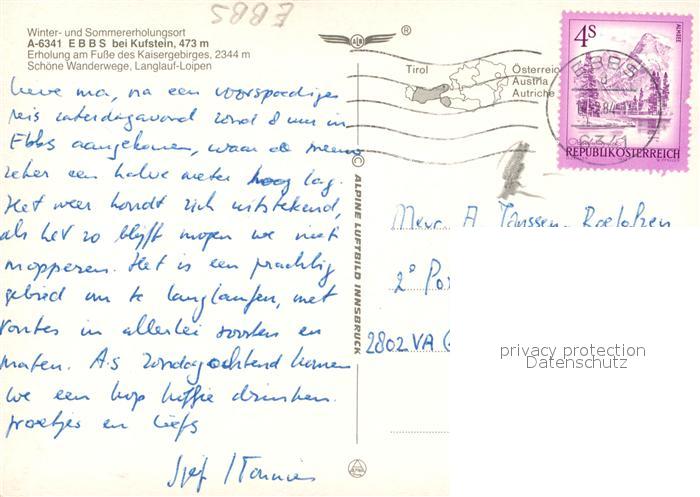 EBBS
Winter- und Sommererholungsort
A-6341 EBBS bei Kufstein, 473 m
Erholung am Fuße des Kaisergebirges, 2344 m
Schöne Wanderwege, Langlauf-Loipen
Lieve ma, na een voorspoedige
reis zaterdagavond rond 8 uur in
Ebbs aangekomen, waar de sneeuw
zeker een halve meter hoog lag.
Het weer houdt zich uitstekend,
als het zo blijft mogen we niet
mopperen. Het is een prachtig
gebied om te langlaufen, met
routes in allerlei soorten en
maten. A.s. zondagochtend komen
we een kop koffie drinken.
groetjes en liefs
Sjef
ALPINE LUFTBILD INNSBRUCK
®
Tirol
Österreic
Austria
Autriche
EBBS
6341
4S
ALMSEE
REPUBLIK ÖSTERREICH
Mevr. A Janssen-Roelofzen
2e
2802 VA
privacy protection
Datenschutz